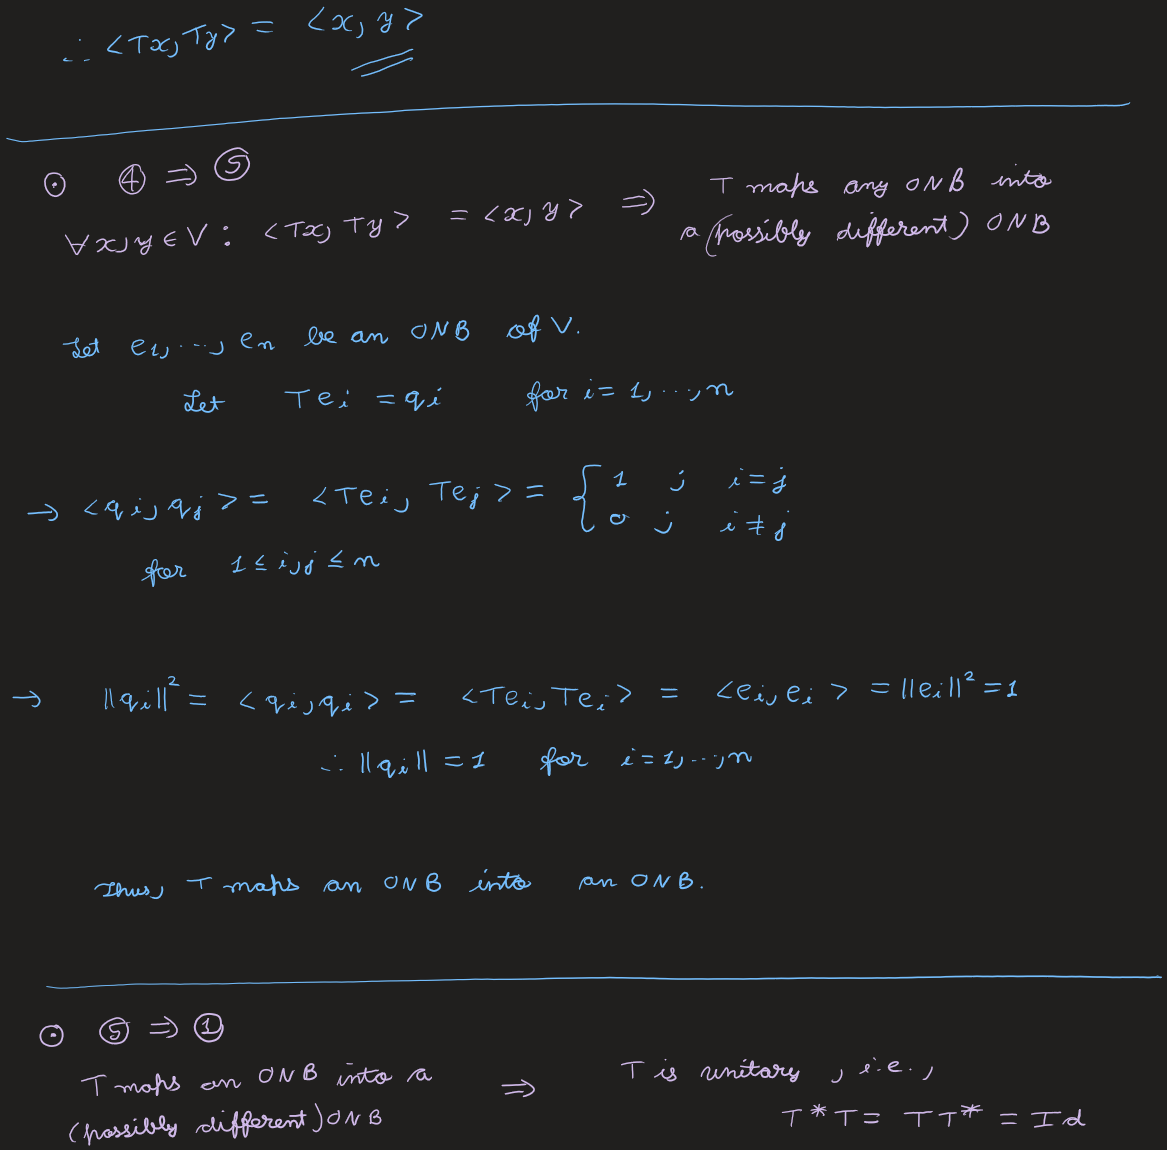 ∴ <Tx, Ty> = <x, y>
⊙ ④ ⇒ ⑤
∀x,y ∈ V : <Tx, Ty> = <x, y> ⇒ T maps any ONB into
a (possibly different) ONB
Let e1, ..., en be an ONB of V.
Let Tei = qi for i = 1, ..., n
→ <qi, qj> = <Tei, Tej> = { 1 ; i = j
0 ; i ≠ j
for 1 ≤ i,j ≤ n
→ ||qi||² = <qi, qi> = <Tei, Tei> = <ei, ei> = ||ei||² = 1
∴ ||qi|| = 1 for i = 1, ..., n
Thus, T maps an ONB into an ONB.
⊙ ⑤ ⇒ ①
T maps an ONB into a ⇒ T is unitary, i.e.,
(possibly different) ONB T*T = TT* = Id